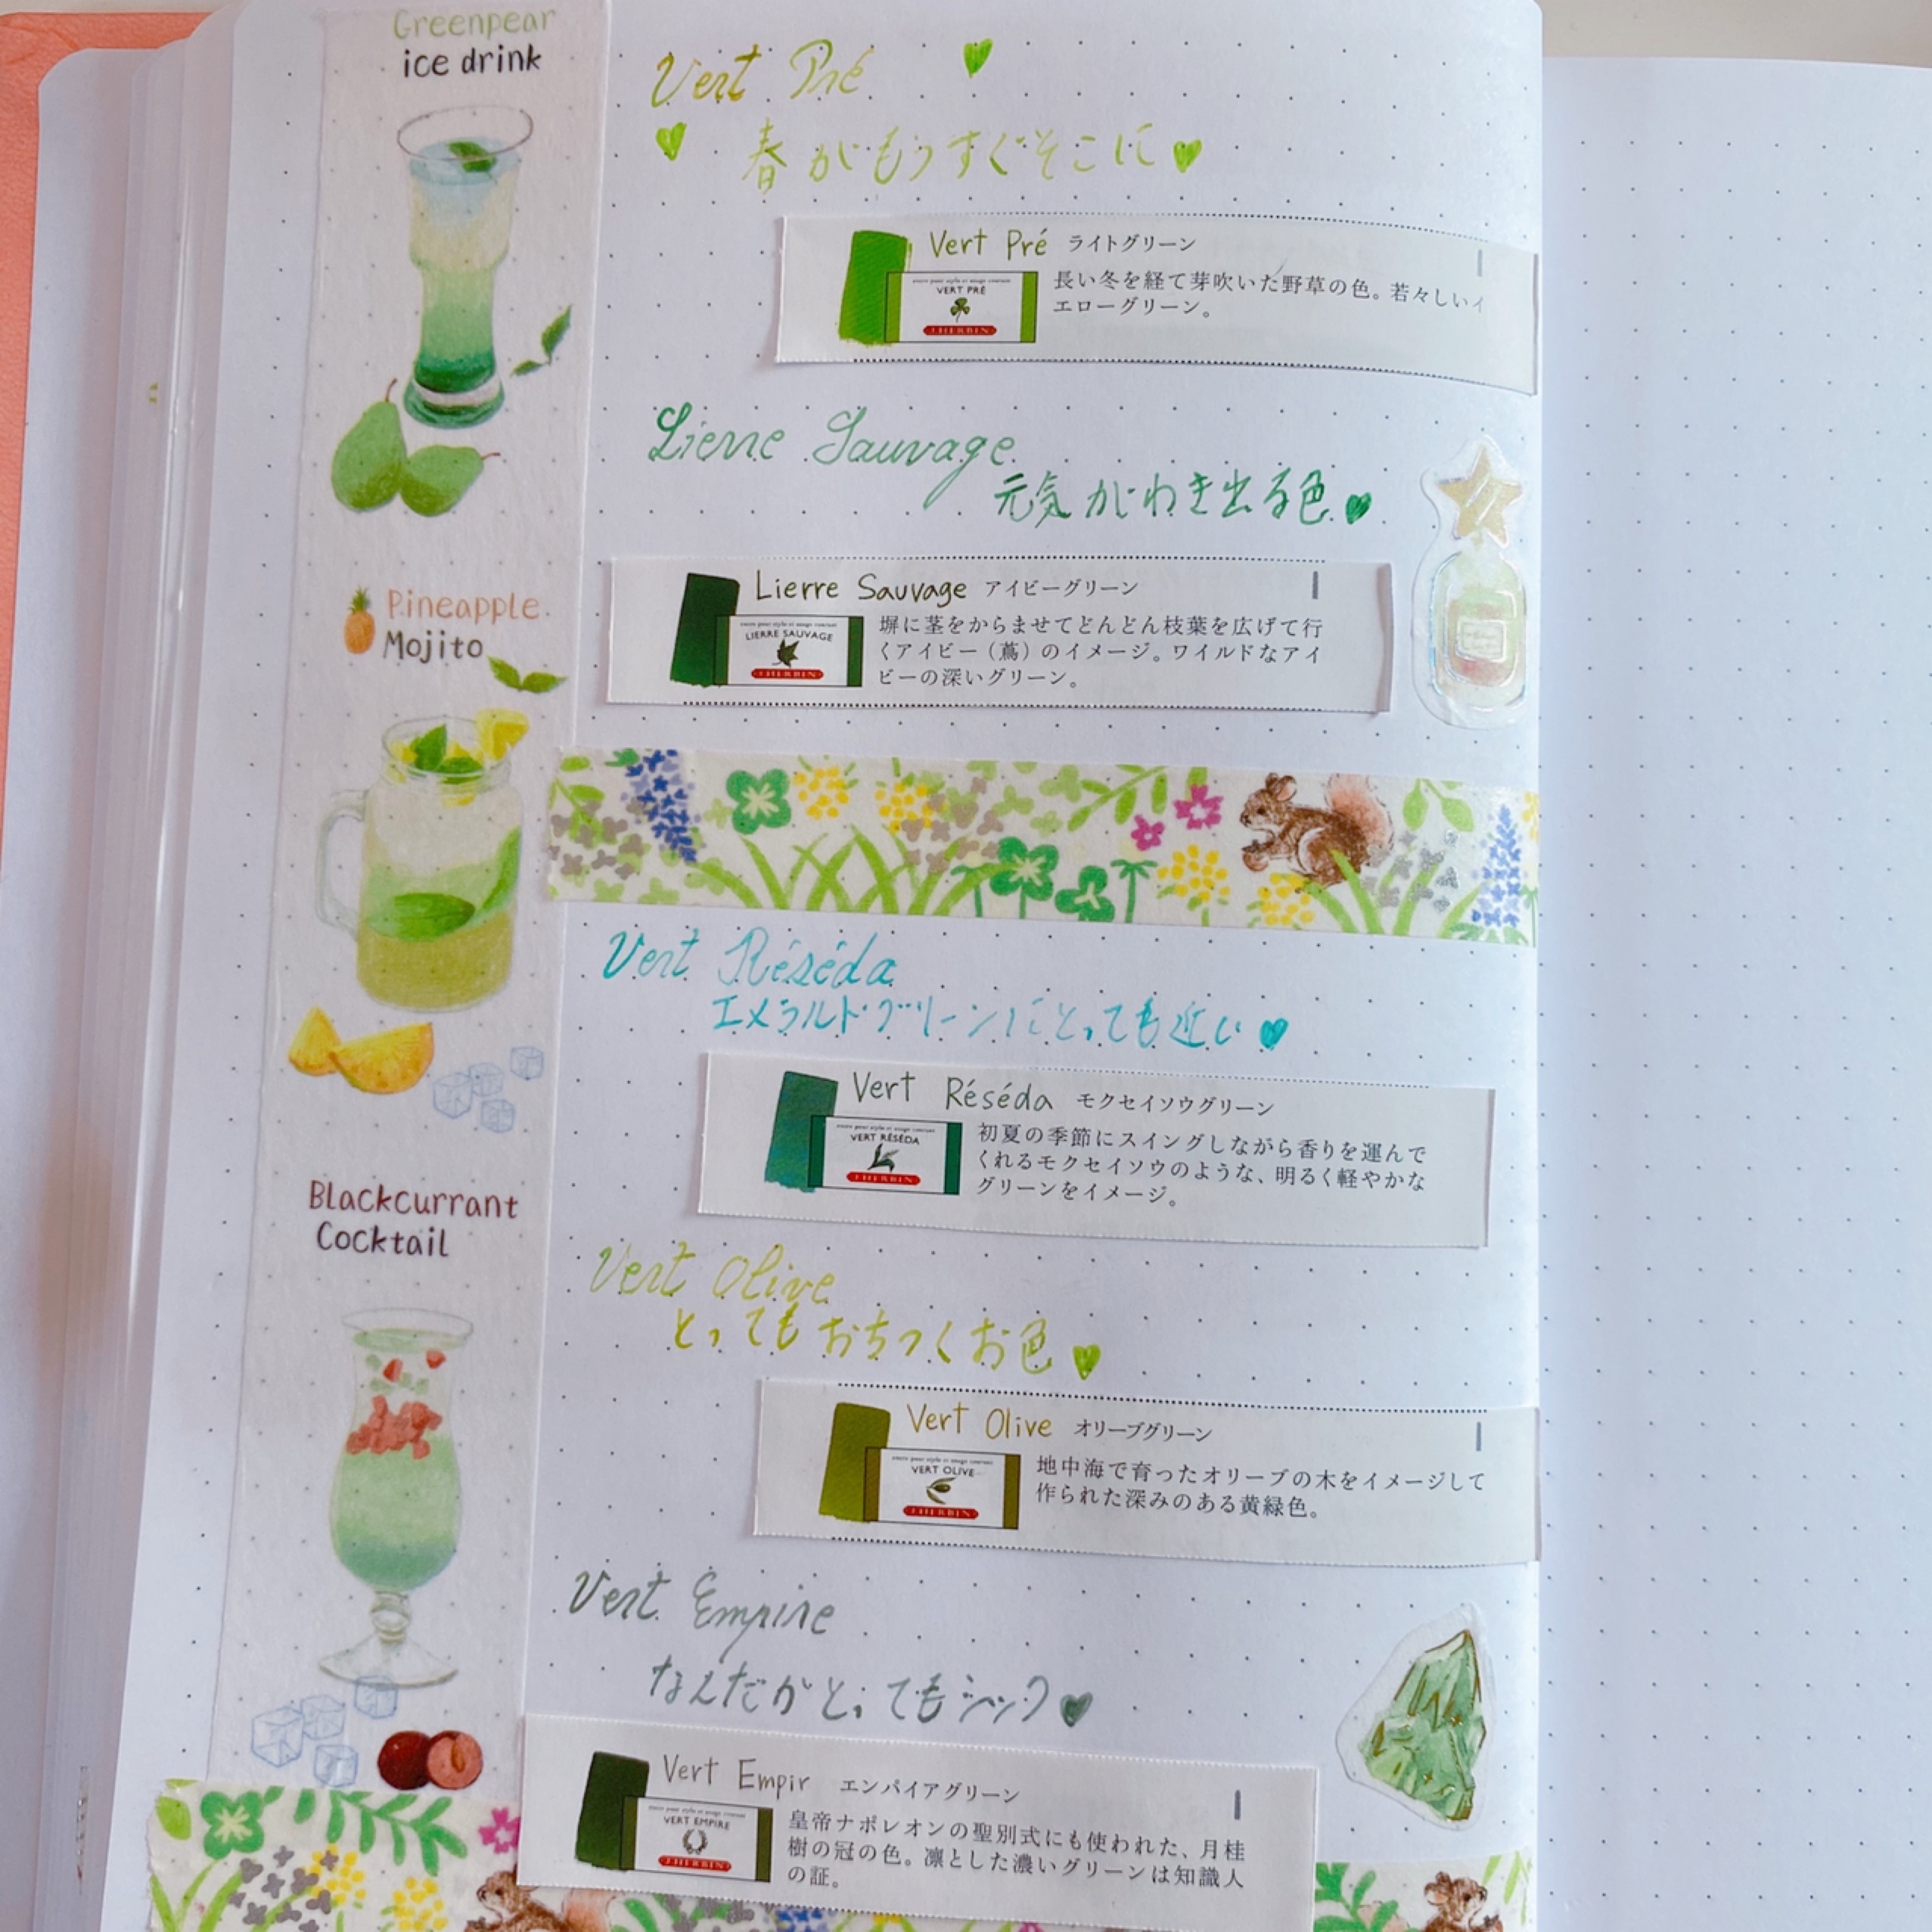 Greenpear
ice drink
Pineapple
Mojito
Blackcurrant
Cocktail
Vert Pré
春がもうすぐそこに
Vert Pré ライトグリーン
encre pour stylo et usage courant
VERT PRÉ
J.HERBIN
長い冬を経て芽吹いた野草の色。若々しいイ
エローグリーン。
Lierre Sauvage
元気がわき出る色
Lierre Sauvage アイビーグリーン
encre pour stylo et usage courant
LIERRE SAUVAGE
J.HERBIN
塀に茎をからませてどんどん枝葉を広げて行
くアイビー（蔦）のイメージ。ワイルドなアイ
ビーの深いグリーン。
Vert Réséda
エメラルド・グリーンにとっても近い
Vert Réséda モクセイソウグリーン
encre pour stylo et usage courant
VERT RÉSÉDA
J.HERBIN
初夏の季節にスイングしながら香りを運んで
くれるモクセイソウのような、明るく軽やかな
グリーンをイメージ。
Vert Olive
とってもおちつくお色
Vert Olive オリーブグリーン
encre pour stylo et usage courant
VERT OLIVE
J.HERBIN
地中海で育ったオリーブの木をイメージして
作られた深みのある黄緑色。
Vert Empire
なんだかとってもシック
Vert Empir エンパイアグリーン
encre pour stylo et usage courant
VERT EMPIRE
J.HERBIN
皇帝ナポレオンの聖別式にも使われた、月桂
樹の冠の色。凛とした濃いグリーンは知識人
の証。